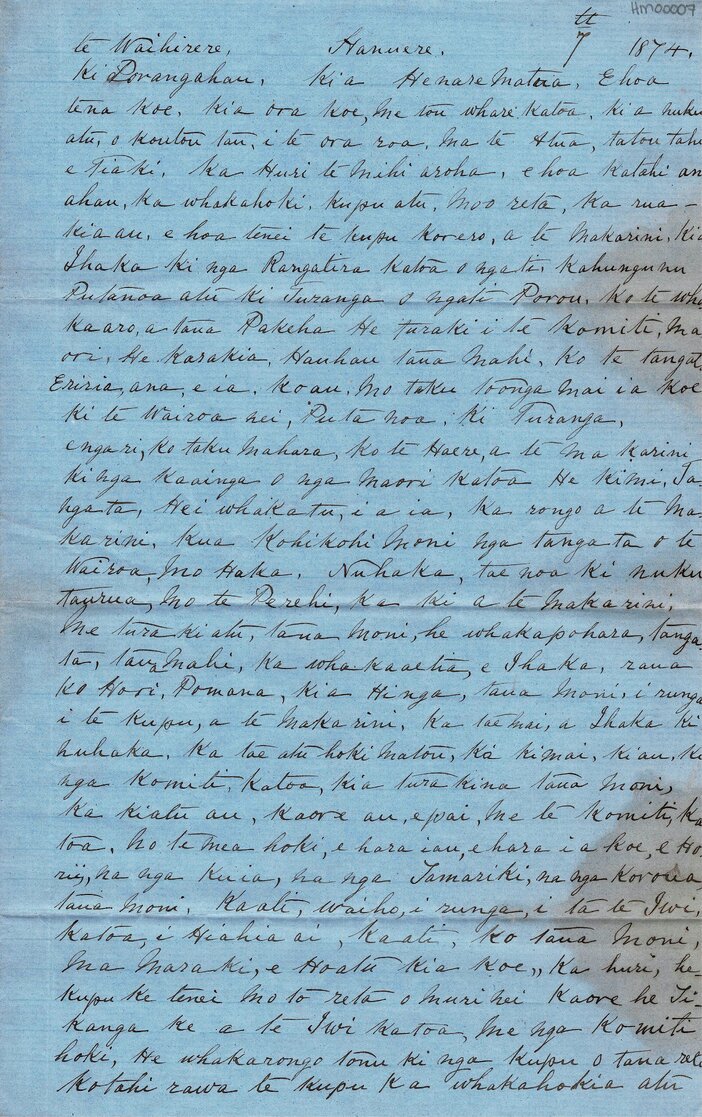 HM00007
te Waihirere, Hanuere. 7th 1874.
Ki Porangahau, Kia Henare Matua, E hoa
tena koe, kia ora koe, Me tou whare katoa, kia nuku
atu, o koutou tau, i te ora roa, Ma te Atua, tatou tahi
e Tiaki, Ka Huri te Mihi aroha, e hoa katahi an
ahau, ka whakahoki, kupu atu, Moo reta, Ka rua-
kia au, e hoa tenei te kupu korero, a te Makarini, Kia
Ihaka ki nga Rangatira katoa o ngati, Kahungunu
Putanoa atu ki Turanga o ngati Porou, ko te wha
kaaro, a taua Pakeha He turaki i te Komiti, Ma
ori, He karakia, Hauhau taua Mahi, ko te tangat
Eriria, ana, e ia, koau, Mo taku toonga mai ia koe
ki te Wairoa nei, Puta noa, ki Turanga,
engari, ko taku Mahara, ko te Haere, a te Makarini
ki nga kaainga o nga Maori katoa He kimi, Ta
ngata, Hei whakatu, i a ia, Ka rongo a te Ma-
karini, kua Kohikohi Moni nga tangata o te
Wairoa, Mo Haka, Nuhaka, tae noa ki nuku
taurua, Mo te Perehi, Ka ki a te Makarini,
Me turaki atu, taua Moni, he whakapohara, tanga
ta, taua Mahi, Ka whakaaetia, e Ihaka, raua
ko Hori, Pomana, kia Hinga, taua Moni, i runga
i te kupu, a te Makarini, Ka tae mai, a Ihaka ki
nuhaka, Ka tae atu hoki Matou, Ka kimai, kiau, ki
nga Komiti, katoa, kia turakina taua Moni,
Ka kiatu au, kaore au, e pai, Me te Komiti, ka
toa, No te mea hoki, e hara iau, e hara i a koe, e Ho
rii, na nga kuia, na nga Tamariki, na nga Koroua,
taua Moni, Kaati, waiho, i runga, i ta te Iwi,
katoa, i Hiahia ai, Kaati, ko taua Moni,
Ma Maraki, e Hoatu kia koe,, Ka huri, he
kupu ke tenei Mo to reta o muri nei Kaore he Ti-
kanga ke a te Iwi katoa, Me nga Komiti
hoki, He whakarongo tonu ki nga kupu o taua reta
kotahi rawa te kupu ka whakahokia atu